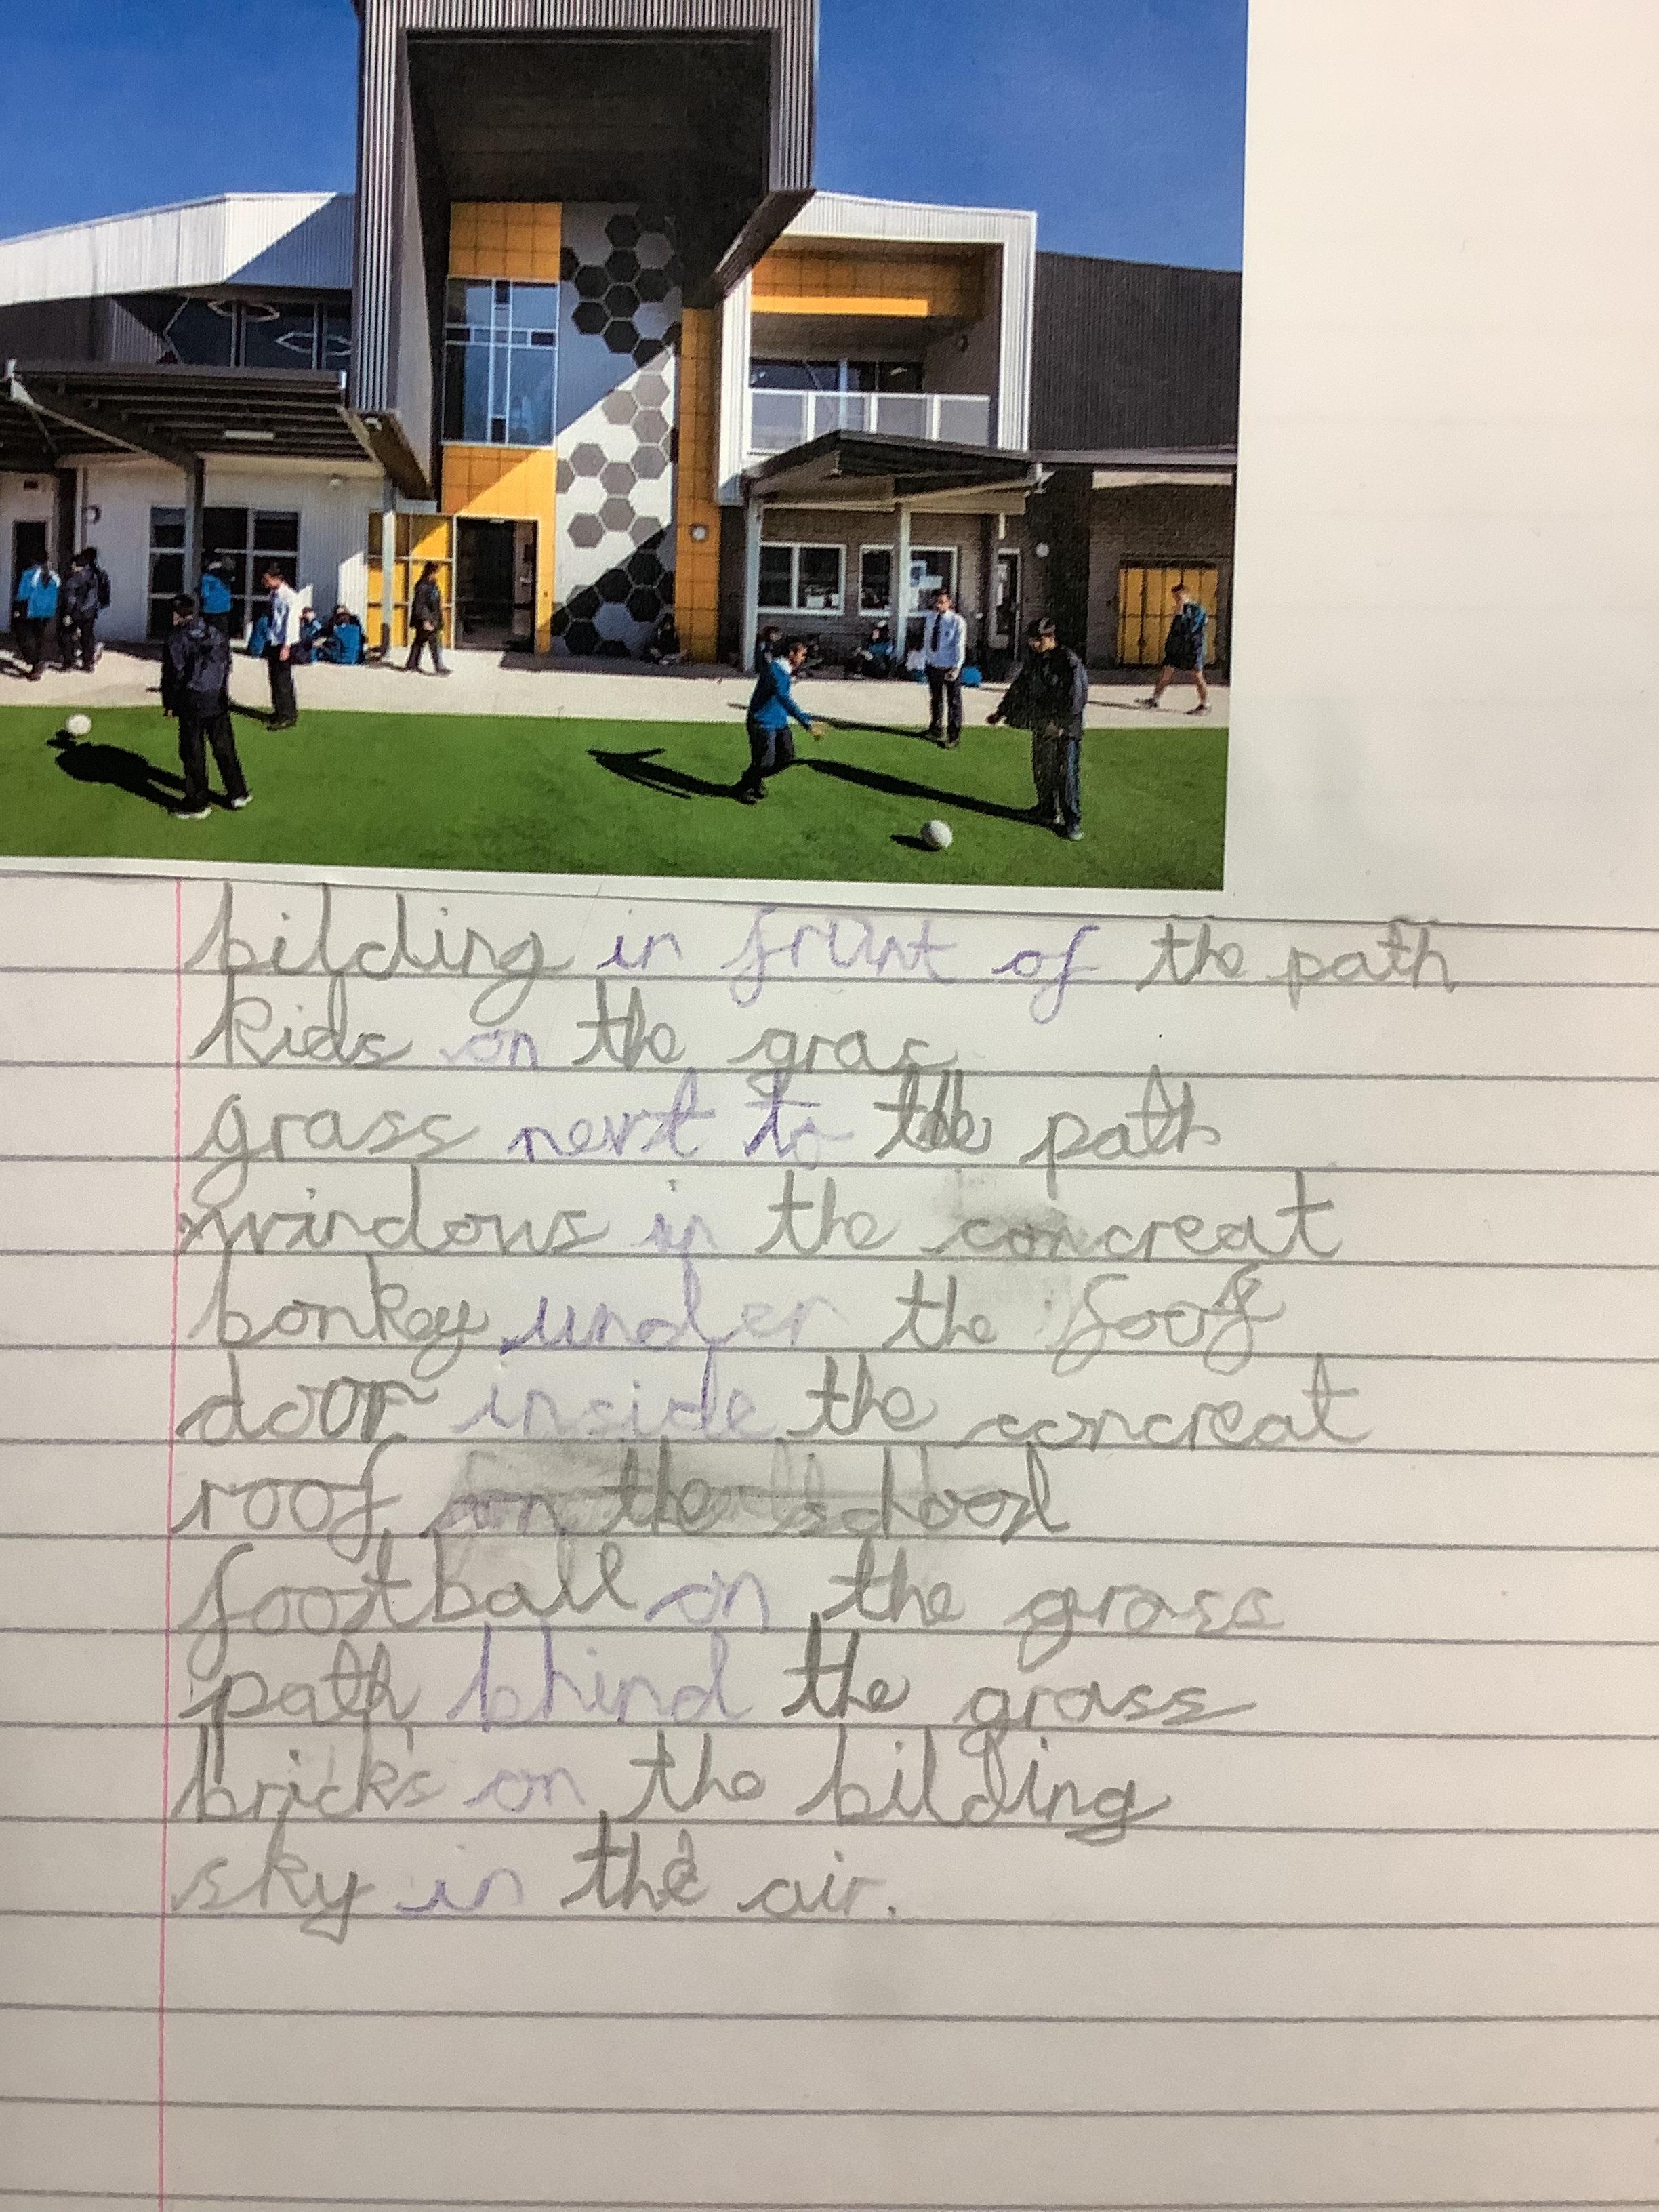 bilding in frunt of the path
kids on the gras
grass next to the path
windows in the concreat
bonkey under the foof
door inside the concreat
roof on the school
football on the grass
path bhind the grass
bricks on the bilding
sky in the air.